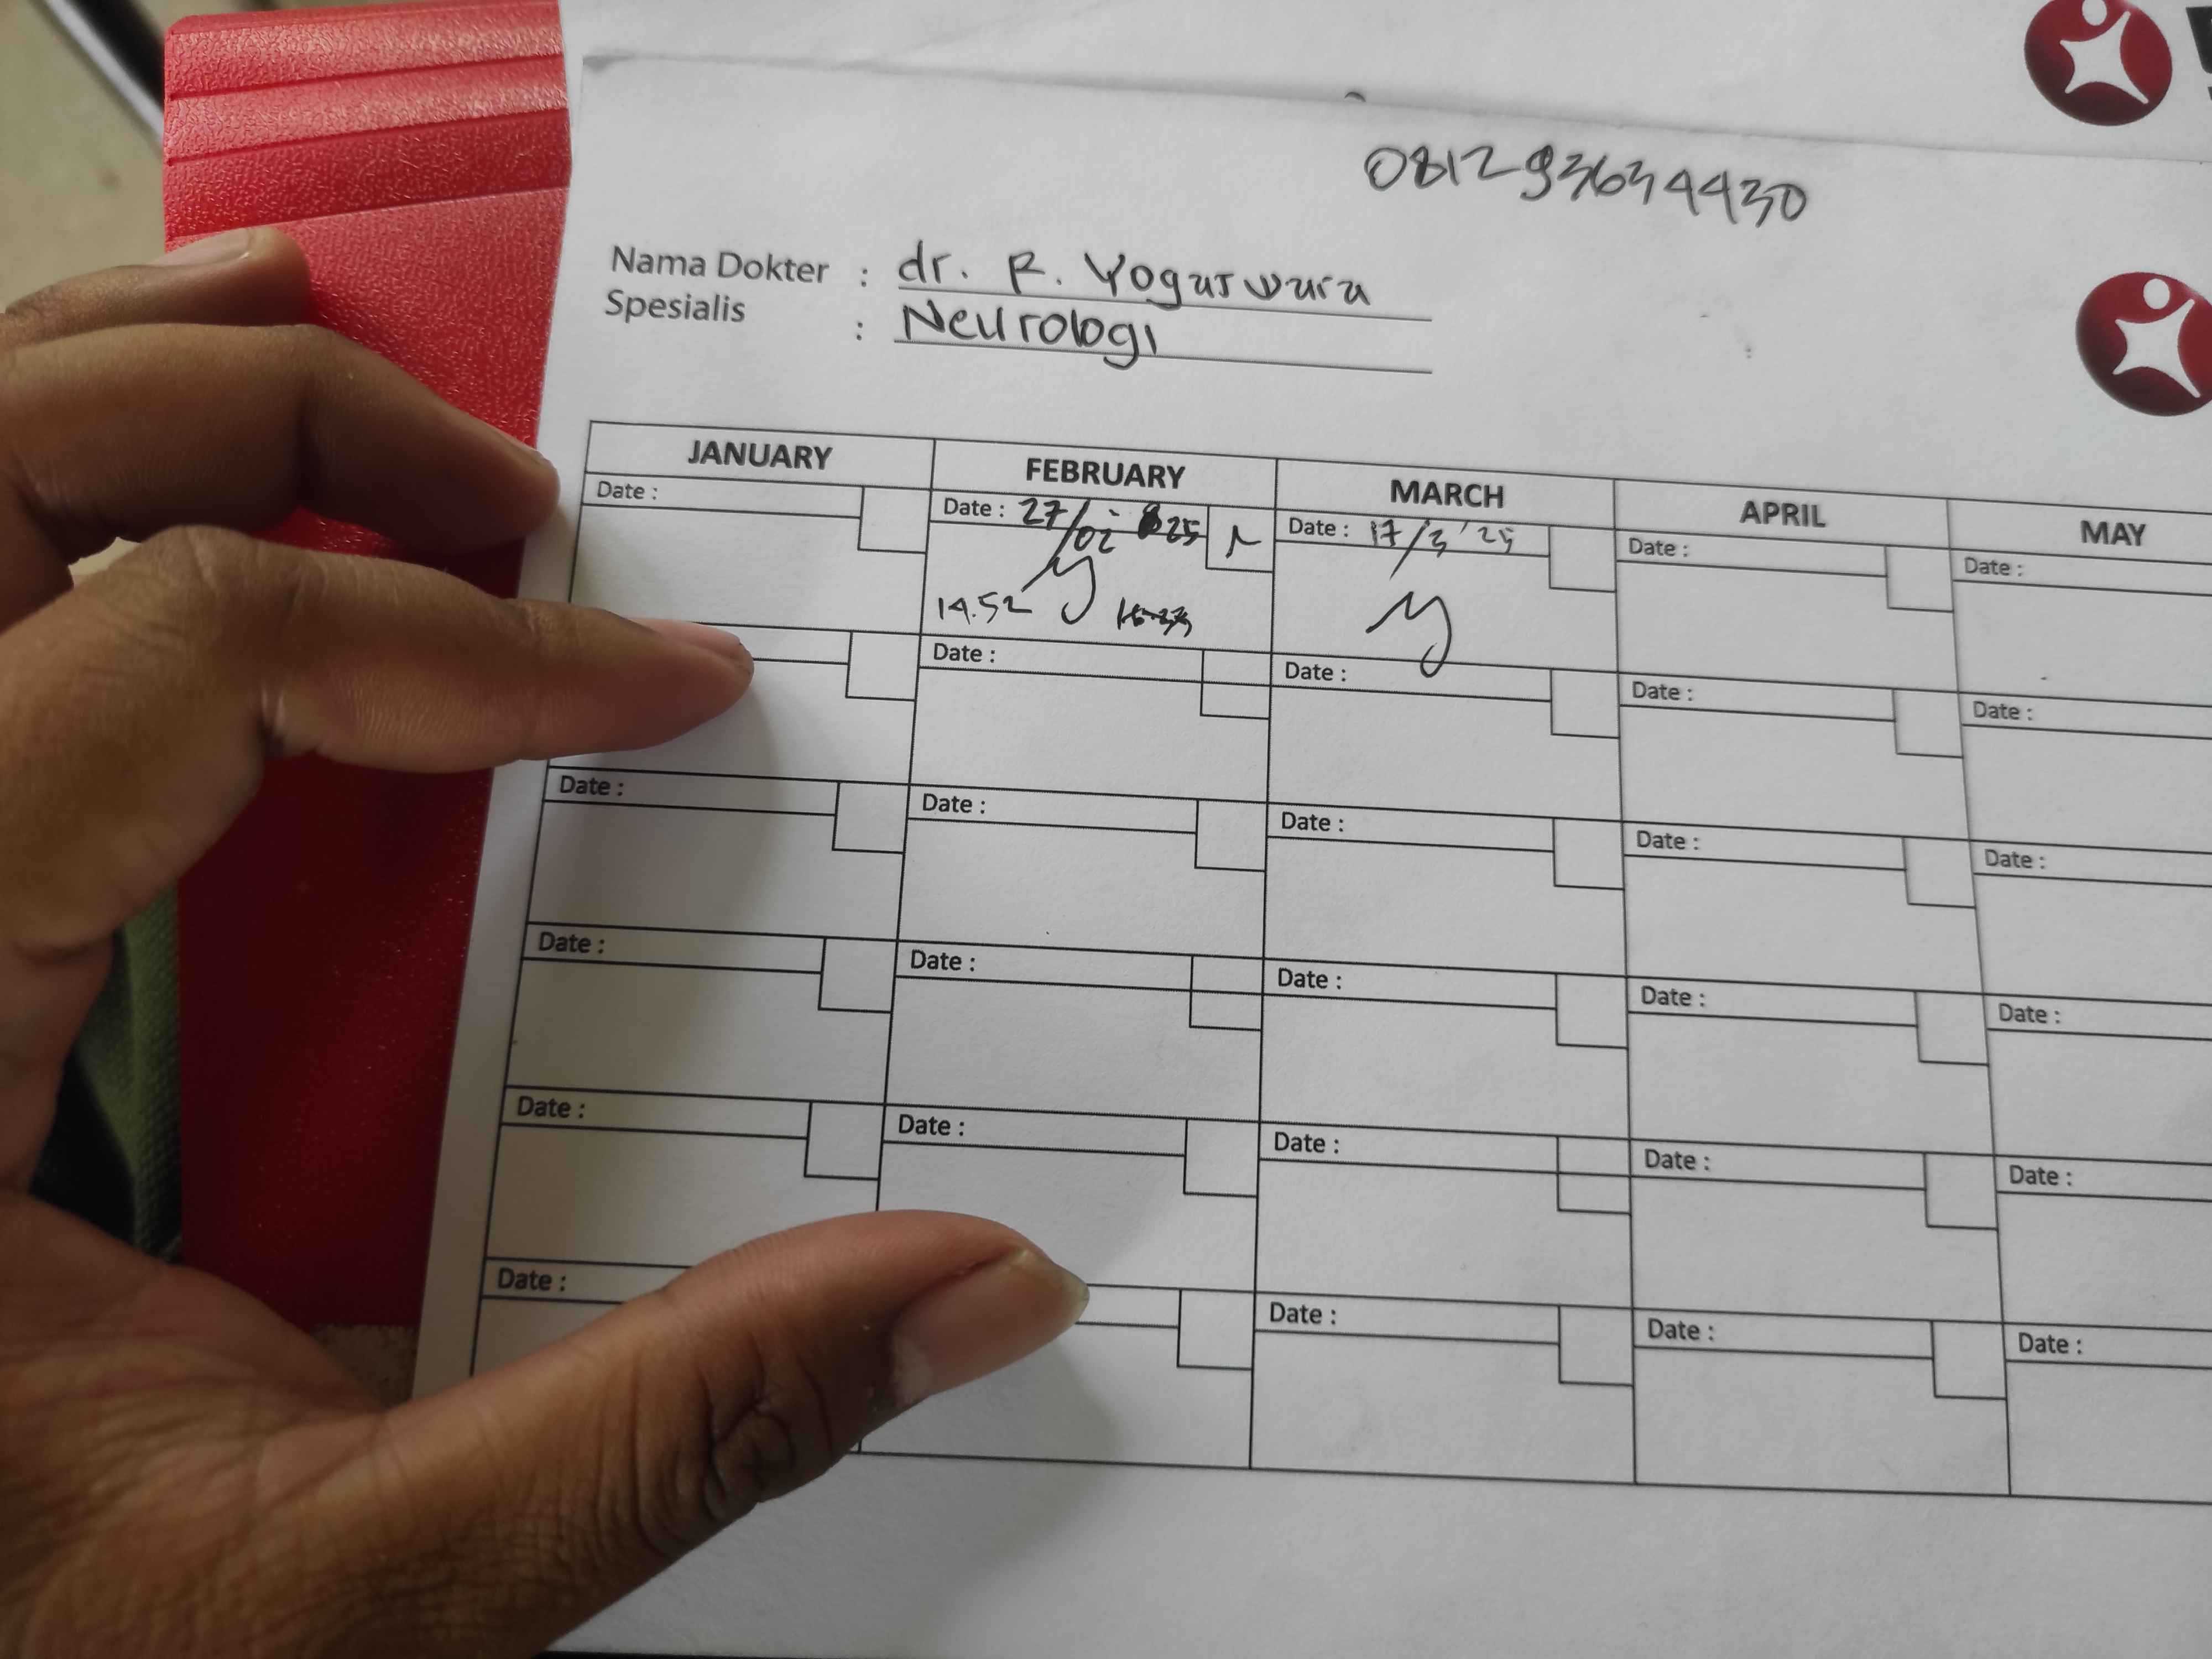 081293634430
Nama Dokter : dr. R. Yogaswara
Spesialis : Neurologi
JANUARY FEBRUARY MARCH APRIL MAY
Date : Date : 27/02 25 Date : 17/3 '25 Date : Date :
14.52
Date : Date : Date : Date :
Date : Date : Date : Date : Date :
Date : Date : Date : Date : Date :
Date : Date : Date : Date : Date :
Date : Date : Date : Date :